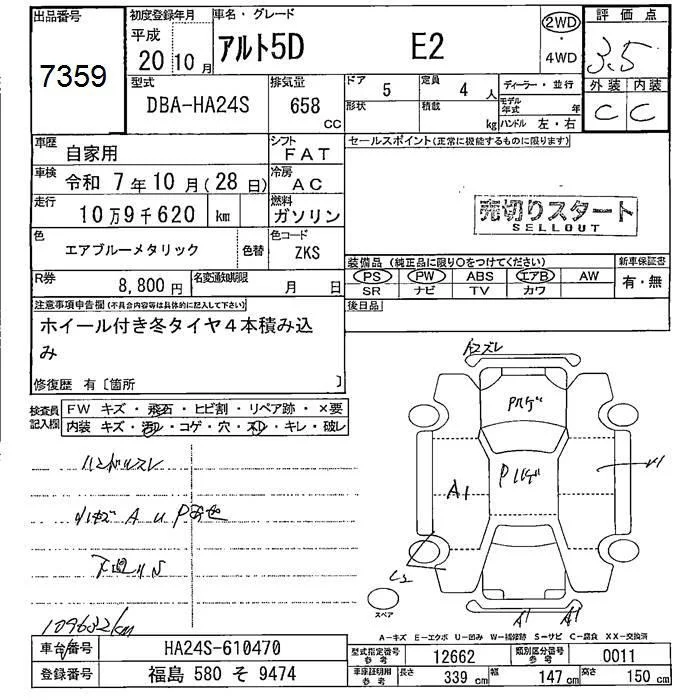 出品番号
7359
初度登録年月
平成
20 10 月
車名・グレード
アルト5D E2
2WD
・
4WD
評価点
3.5
外装 内装
C C
型式
DBA-HA24S
排気量
658
CC
ドア
5
定員
4 人
形状
積載
kg
ディーラー・並行
モデル年式 年
ハンドル 左・右
車歴
自家用
シフト
FAT
車検
令和 7年10月(28日)
冷房
AC
走行
10万9千620 km
燃料
ガソリン
色
エアブルーメタリック
色替
色コード
ZKS
R券
8,800円
名変通知期限
月 日
セールスポイント(正常に機能するものに限ります)
売切りスタート
SELLOUT
装備品 (純正品に限り○をつけてください)
PS PW ABS エアB AW
SR ナビ TV カワ
新車保証書
有・無
後日品
注意事項申告欄(不具合内容等は具体的に記入して下さい)
ホイール付き冬タイヤ4本積み込
み
修復歴 有〔箇所 〕
検査員
記入欄
FW キズ・飛石・ヒビ割・リペア跡・×要
内装 キズ・汚れ・コゲ・穴・スレ・キレ・破レ
ハンドルスレ
A U
下回りS
109622km
A2スレ
Pハゲ
Pハゲ
A1
A1
A1
スペア
A-キズ E-エクボ U-凹み W-補修跡 S-サビ C-腐食 XX-交換済
車台番号
HA24S-610470
登録番号
福島 580 そ 9474
型式指定番号
参考
12662
類別区分番号
参考
0011
車庫証明用
参考
長さ
339 cm
幅
147 cm
高さ
150 cm